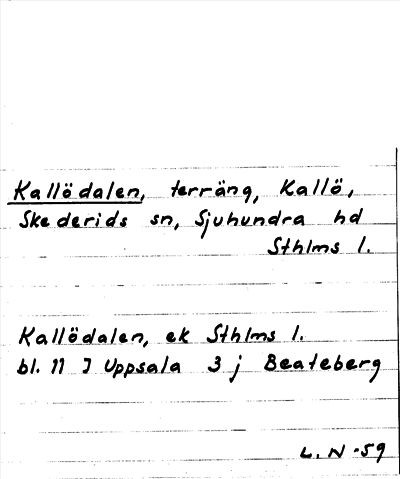 Kallödalen, terräng, Kallö,
Skederids sn, Sjuhundra hd
Sthlms l.
Kallödalen, ek Sthlms l.
bl. 11 I Uppsala 3 j Beateberg
L. N -59